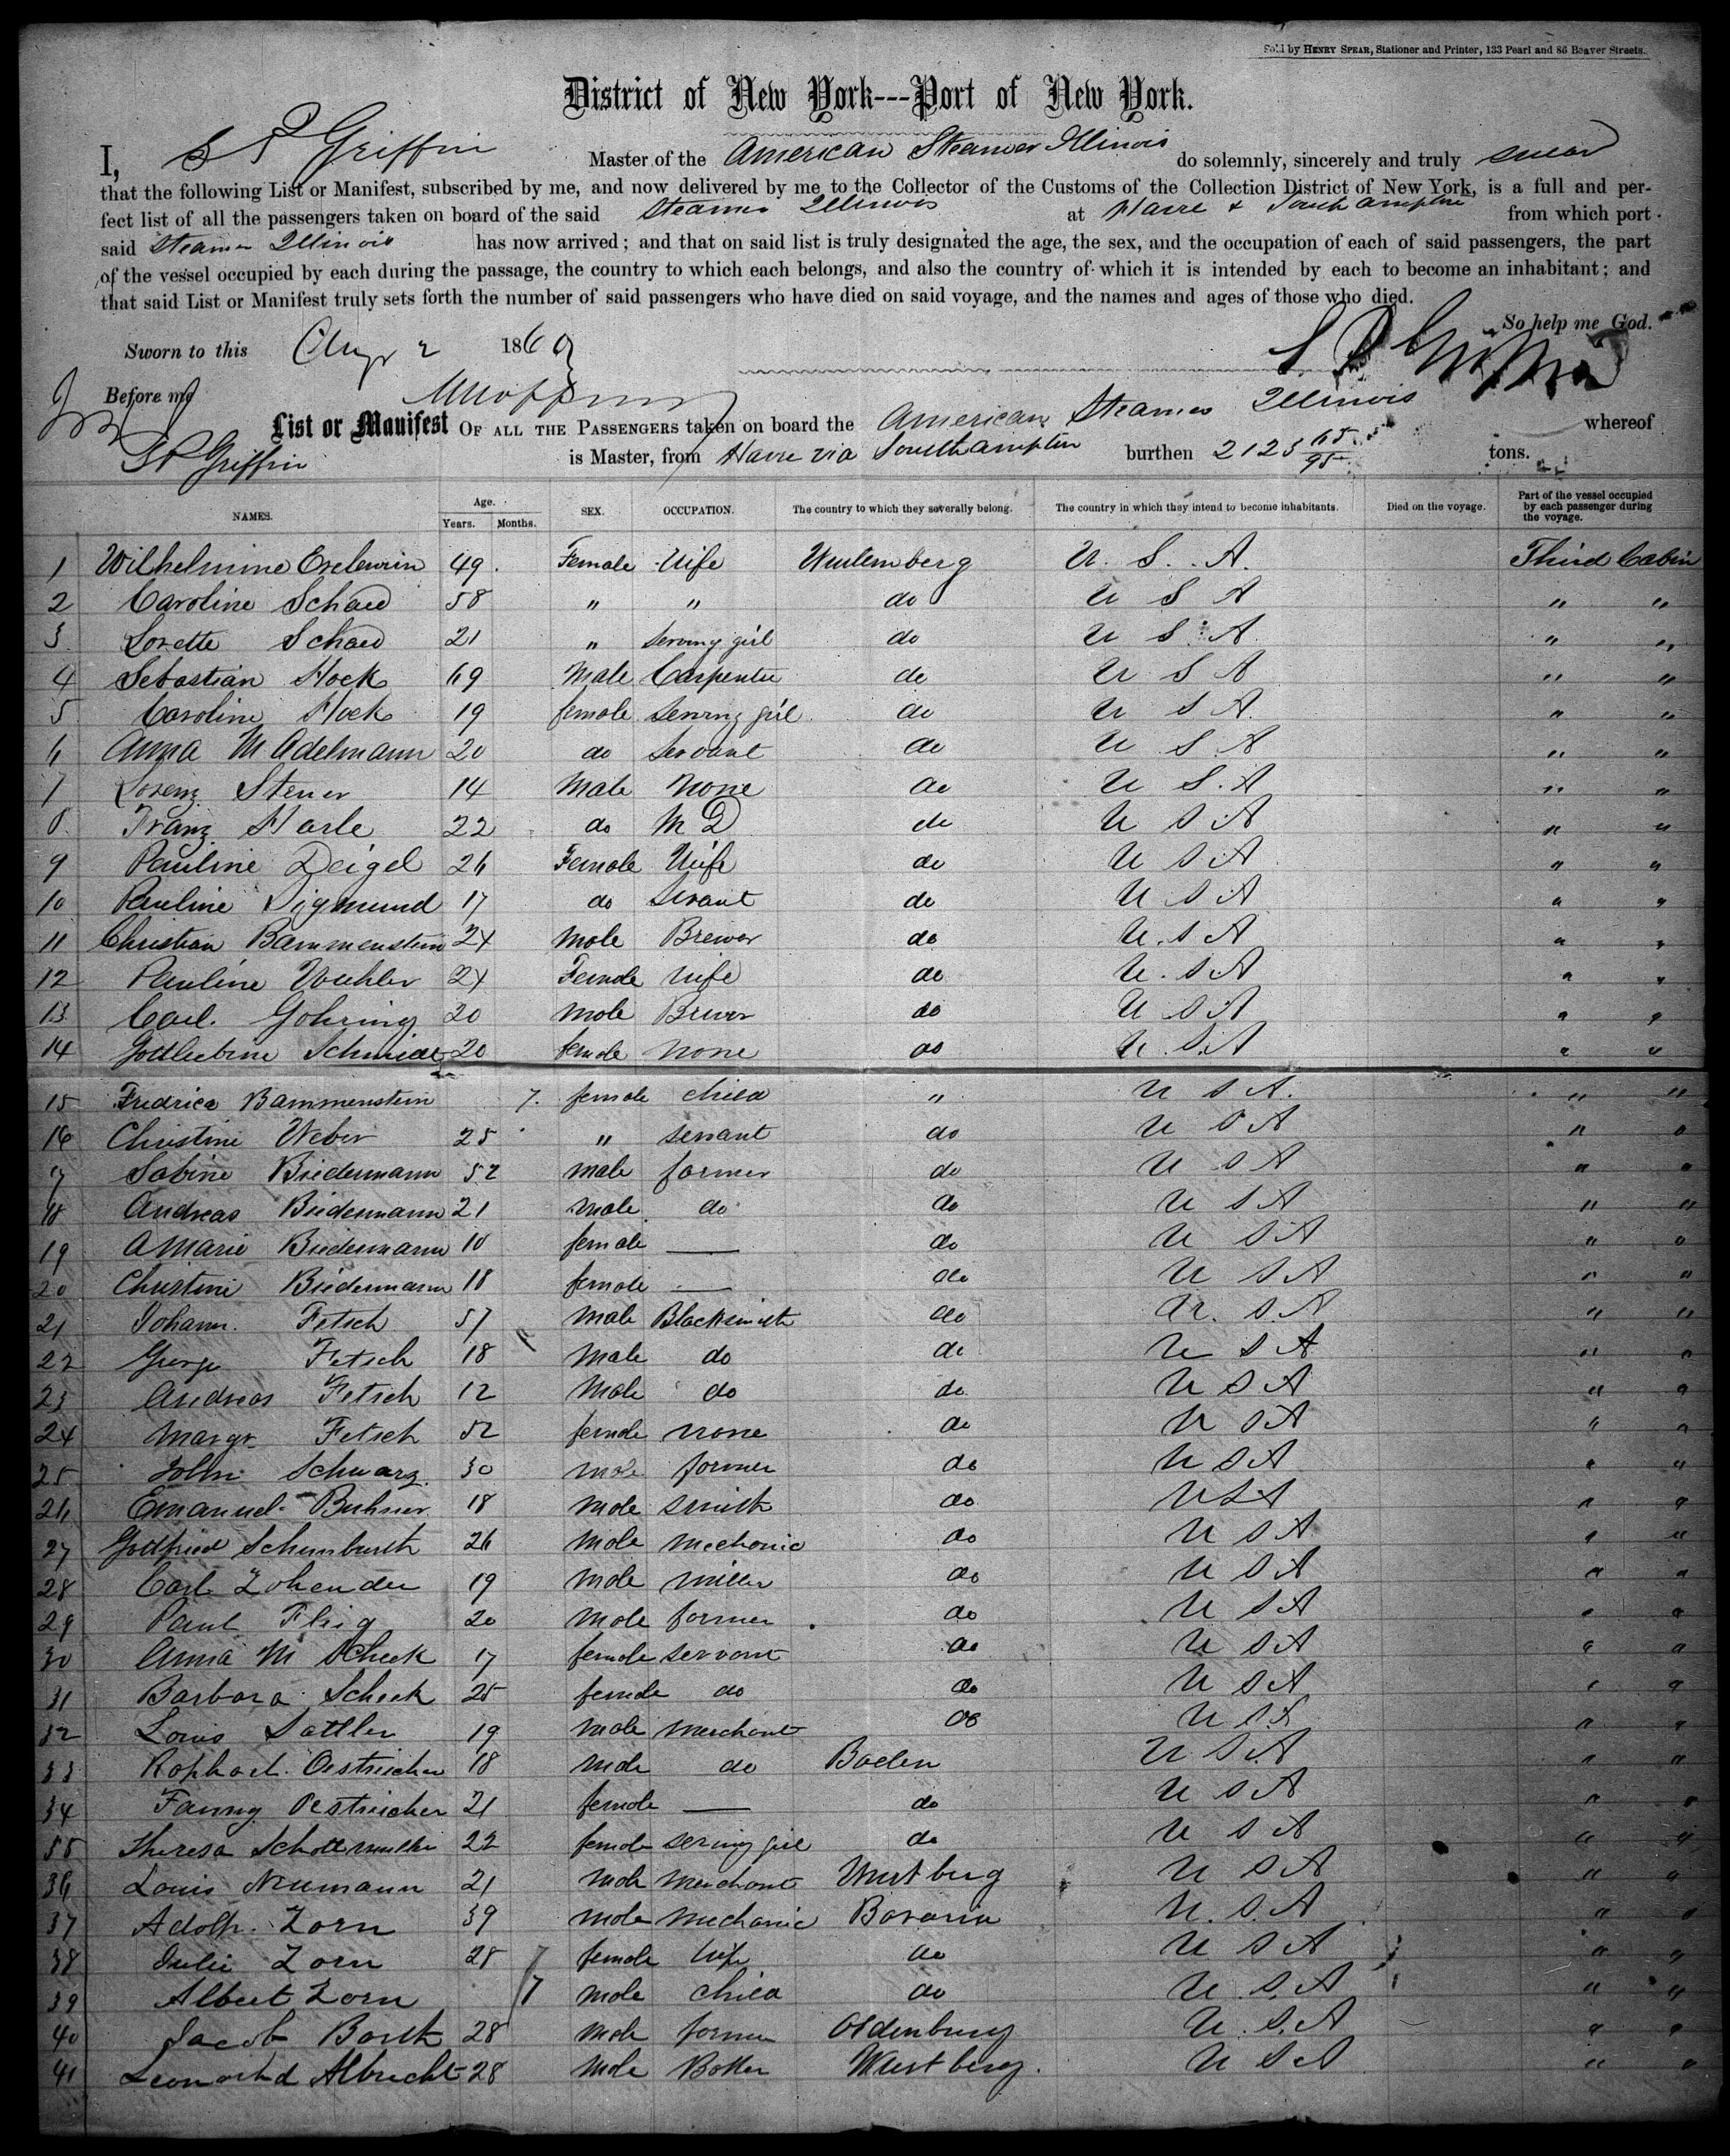 Sold by HENRY SPEAR, Stationer and Printer, 133 Pearl and 86 Beaver Streets.
District of New York---Port of New York.
I, S P Griffin Master of the American Steamer Illinois do solemnly, sincerely and truly swear
that the following List or Manifest, subscribed by me, and now delivered by me to the Collector of the Customs of the Collection District of New York, is a full and per-
fect list of all the passengers taken on board of the said Steamer Illinois at Havre & Southampton from which port
said Steamer Illinois has now arrived; and that on said list is truly designated the age, the sex, and the occupation of each of said passengers, the part
of the vessel occupied by each during the passage, the country to which each belongs, and also the country of which it is intended by each to become an inhabitant; and
that said List or Manifest truly sets forth the number of said passengers who have died on said voyage, and the names and ages of those who died.
So help me God.
Sworn to this Augt 2 1860
S P Griffin
Before me
List or Manifest OF ALL THE PASSENGERS taken on board the American Steamer Illinois whereof
S P Griffin is Master, from Havre via Southampton burthen 2123 65/95 tons.
NAMES. Age. Years. Months. SEX. OCCUPATION. The country to which they severally belong. The country in which they intend to become inhabitants. Died on the voyage. Part of the vessel occupied by each passenger during the voyage.
1 Wilhelmine 49 Female Wife Wurtemberg U. S. A. Third Cabin
2 Caroline Schaed 58 " " do U S A " "
3 Lorette Schaed 21 " serving girl do U S A " "
4 Sebastian Hock 69 Male Carpenter do U S A " "
5 Caroline Hock 19 female serving girl do U S A " "
6 Anna M Adelmann 20 do servant do U S A " "
7 Lorenz Stener 14 Male None do U S. A " "
8 Franz Harle 22 do M D do U S A " "
9 Pauline Deigel 26 Female Wife do U S A " "
10 Pauline Sigmund 17 do Servant do U S A " "
11 Christian Bammenstein 24 Male Brewer do U. S A " "
12 Pauline 24 Female Wife do U. S A " "
13 Carl Gohring 20 Male Brewer do U S A " "
14 Gottliebine Schmidt 20 female none do U. S. A " "
15 Fredrica Bammenstein 7 female child " U S A. " "
16 Christine Weber 25 " servant do U S A " "
17 Sabine Biedermann 52 male farmer do U S A " "
18 Andreas Biedermann 21 male do do U S A " "
19 A Marie Biedermann 10 female — do U S A " "
20 Christine Biedermann 18 female — do U S A " "
21 Johann Fetsch 57 male Blacksmith do U. S. A " "
22 George Fetsch 18 Male do do U S A " "
23 Andreas Fetsch 12 Male do do U S A " "
24 Margr Fetsch 52 female none do U S A " "
25 John Schwarz 30 male farmer do U S A " "
26 Emanuel Buhner 18 male smith do U S A " "
27 Gottfried 26 male mechanic do U S A " "
28 Carl Zohender 19 male miller do U S A " "
29 Paul Flig 20 male farmer do U S A " "
30 Anna M Scheck 17 female servant do U S A " "
31 Barbara Scheck 25 female do do U S A " "
32 Louis Sattler 19 male merchant do U S A " "
33 Raphael Oestreicher 18 male do Baden U S A " "
34 Fanny Oestreicher 21 female — do U S A " "
35 Theresa 22 female serving girl do U S A " "
36 Louis Neumann 21 male merchant Wurtberg U S A " "
37 Adolp. Zorn 39 male mechanic Bavaria U. S. A " "
38 Julie Zorn 28 female wife do U S A " "
39 Albert Zorn 7 male child do U S. A " "
40 Jacob Barth 28 male farmer Oldenburg U. S. A " "
41 Leonorhd Albrecht 28 male Baker Wurtberg. U S A " "